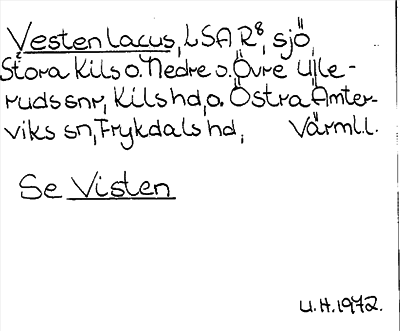 Vesten lacus, LSA R8, sjö,
Stora Kils o. Nedre o. Övre Ulle-
ruds snr, Kils hd, o. Östra Ämter-
viks sn, Frykdals hd, Värml.l.
Se Visten
U.H. 1972.